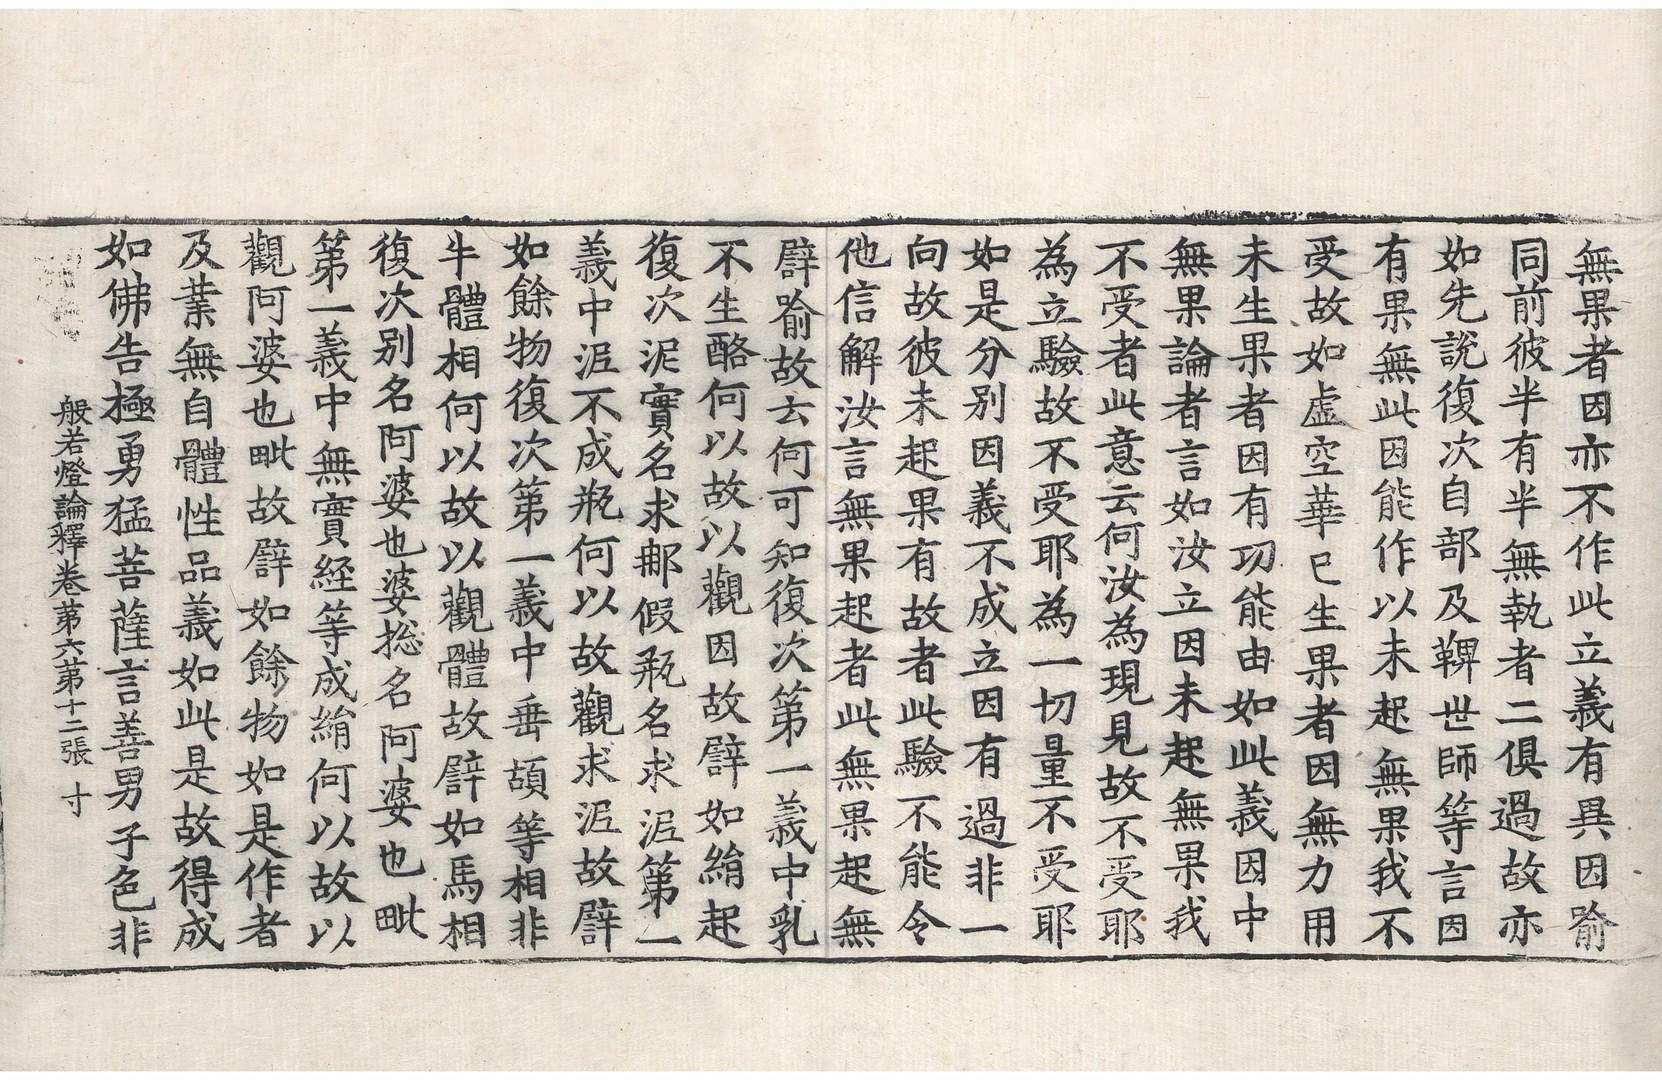 無果者因亦不作此立義有異因喻
同前彼半有半無執者二俱過故亦
如先說復次自部及鞞世師等言因
有果無此因能作以未起無果我不
受故如虛空華已生果者因無力用
未生果者因有功能由如此義因中
無果論者言如汝立因未起無果我
不受者此意云何汝為現見故不受耶
為立驗故不受耶為一切量不受耶
如是分別因義不成立因有過非一
向故彼未起果有故者此驗不能令
他信解汝言無果起者此無果起無
譬喻故云何可知復次第一義中乳
不生酪何以故以觀因故譬如絹起
復次泥實名求那假瓶名求泥第一
義中泥不成瓶何以故觀求泥故譬
如餘物復次第一義中垂頡等相非
牛體相何以故以觀體故譬如馬相
復次別名阿婆也婆揔名阿婆也毗
第一義中無實經等成絹何以故以
觀阿婆也毗故譬如餘物如是作者
及業無自體性品義如此是故得成
如佛告極勇猛菩薩言善男子色非
般若燈論釋卷第六第十二張 寸